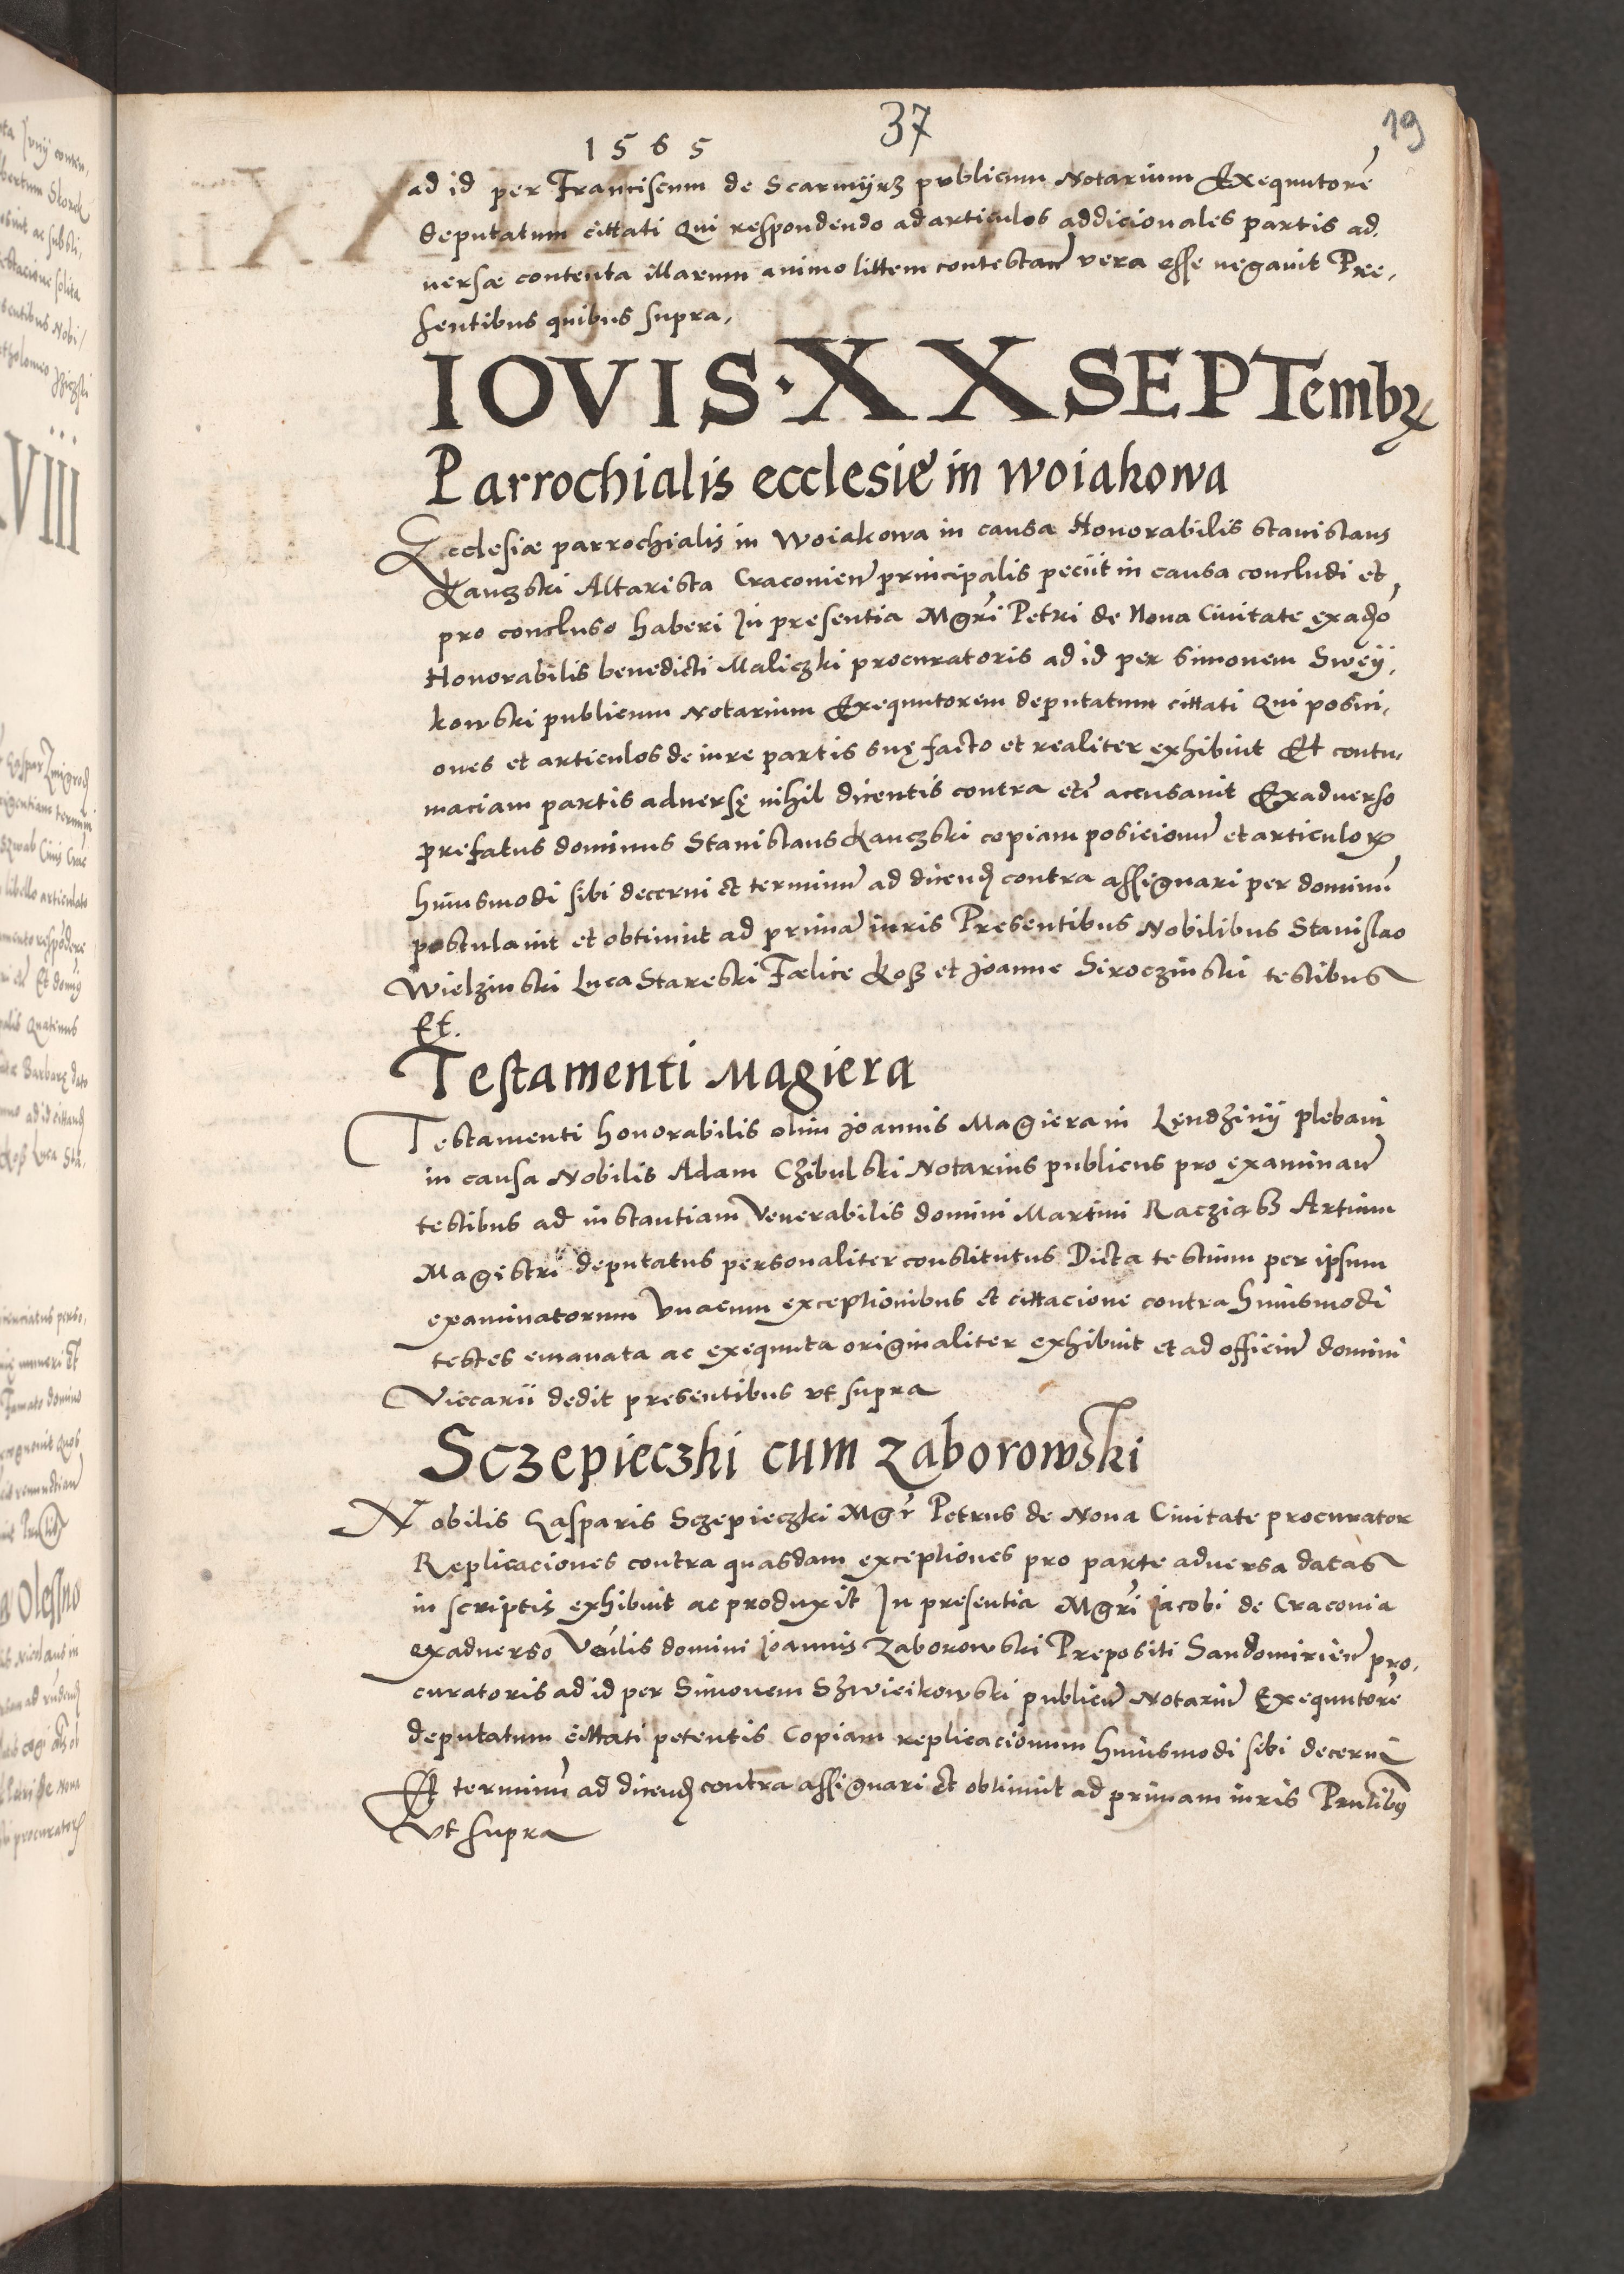 37
19
1565
ad id per Franciscum de Scarmÿrz publicum Notarium Exequutorē
deputatum cittati Qui respondendo ad articulos addicionales partis ad,
uersæ contenta illarum animo littem contestan̄ vera esse negauit Pre,
sentibus quibus supra,
IOVIS · XX SEPTembꝝ
Parrochialis ecclesię in Woiakowa
Ecclesiæ parrochialis in Woiakowa in causa Honorabilis Stanislaus
Kanczski Altarista Craconien̄ principalis peciit in causa concludi et
pro concluso haberi In presentia Mgr̄i Petri de Noua Ciuitate exađo
Honorabilis benedicti Maliczki procuratoris ad id per Simonem Sweÿ,
kowski publicum Notarium Exequutorem deputatum cittati Qui posici,
ones et articulos de iure partis suę facto et realiter exhibuit Et contu,
maciam partis aduersę nihil dicentis contra etc̄ accusauit Exaduerso
prefatus dominus Stanislaus Kanczski copiam posicionū et articuloꝝ
huiusmodi sibi decerni et terminū ad dicend̄ contra assignari per dominū
postulauit et obtinuit ad primā iuris Presentibus Nobilibus Stanislao
Wielzinski Luca Stareski Fœlice Koss et Joanne Siroczinski testibus
Et.
Testamenti Magiera
Testamenti honorabilis olim Joannis Magiera in Lendzinÿ plebani
in causa Nobilis Adam Czibulski Notarius publicus pro examinan̄
testibus ad instantiam Venerabilis domini Martini Racziass Artium
Magistri deputatus personaliter constitutus Dicta testium per ipsum
examinatorum Vnacum exceptionibus et cittacione contra huiusmodi
testes emanata ac exequuta originaliter exhibuit et ad officiū domini
Viccarii dedit presentibus vt supra
Sczepieczki cum Zaborowski
Nobilis Gasparis Sczepieczki Mgr̄ Petrus de Noua Ciuitate procurator
Replicaciones contra quasdam exceptiones pro parte aduersa datas
in scriptis exhibuit ac produxit In presentia Mgr̄i Jacobi de Craconia
exaduerso Ven̄lis domini Joannis Zaborowski Prepositi Sandomirien̄ pro,
curatoris ad id per Simonem Szwieikowski publicū Notariū Exequutorē
deputatum cittati petentis Copiam replicacionum huiusmodi sibi decerni
Et terminū ad dicend̄ contra assignari et obtinuit ad primam iuris Pnt̄ibꝰ
vt supra